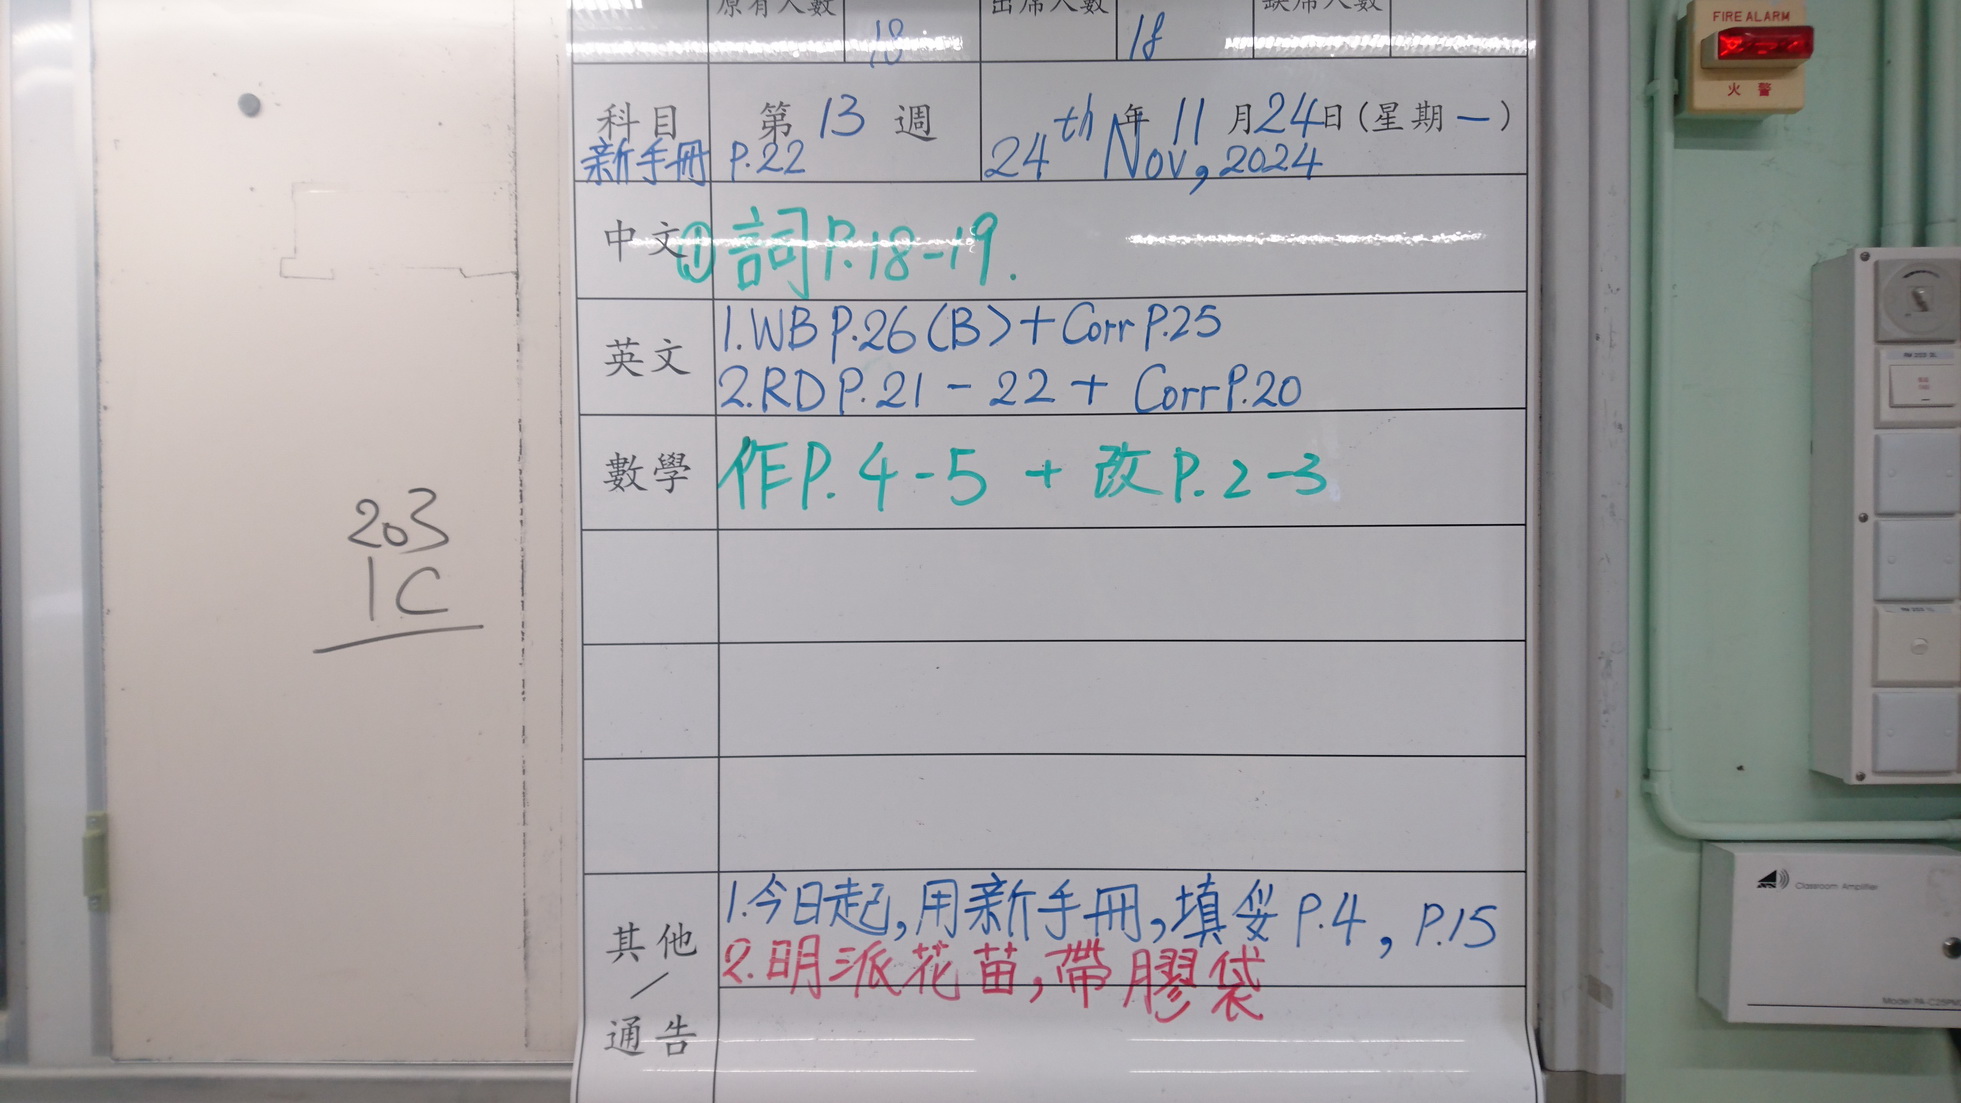 原有人數 18 出席人數 18 缺席人數
FIRE ALARM
火警
科目 第 13 週 年 11 月 24 日 (星期一)
新手冊 P.22 24th Nov, 2024
中文 ① 詞 P.18-19.
英文 1. WB P.26 (B) + Corr P.25
2. RD P.21 - 22 + Corr P.20
數學 作 P. 4-5 + 改 P. 2-3
203
1C
其他 1. 今日起, 用新手冊, 填妥 P.4, P.15
／ 2. 明派花苗, 帶膠袋
通告
Classroom Amplifier